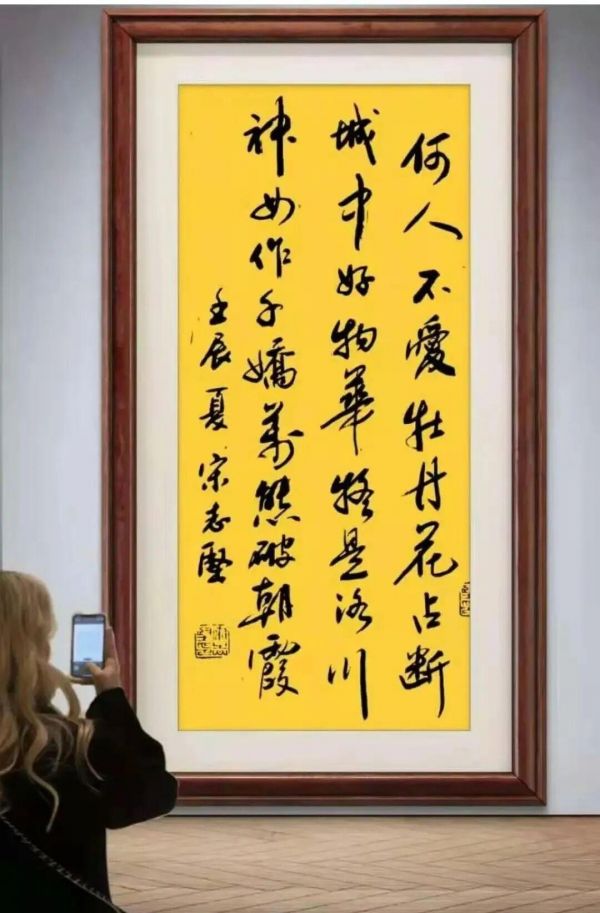 何人不愛牡丹花占断
城中好物華疑是洛川
神女作千嬌萬態破朝霞
壬辰夏宋志堅